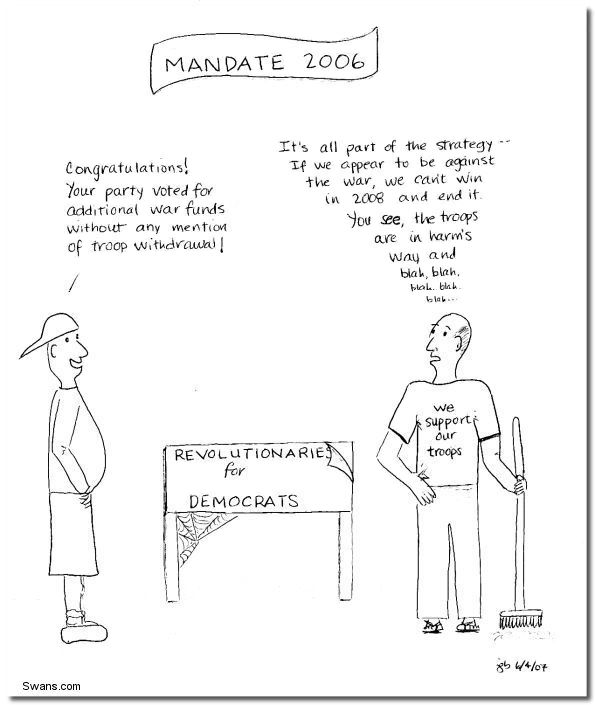 MANDATE 2006
Congratulations!
Your party voted for
additional war funds
without any mention
of troop withdrawal!
It's all part of the strategy --
If we appear to be against
the war, we can't win
in 2008 and end it.
You see, the troops
are in harm's
way and
blah, blah,
blah.. blah.
blah...
we
support
our
troops
REVOLUTIONARIES
for
DEMOCRATS
6/4/07
Swans.com